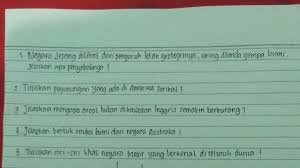 1. Negara Jepang dilihat dari pengaruh letak geologisnya, sering dilanda gempa bumi.
Jelaskan apa penyebabnya !
2. Tuliskan pegunungan yang ada di Amerika Serikat !
3. Jelaskan mengapa areal hutan dikawasan Inggris semakin berkurang ?
4. Jelaskan bentuk muka bumi dari negara Australia !
5. Tuliskan ciri-ciri khas negara Mesir yang terkenal di seluruh dunia !